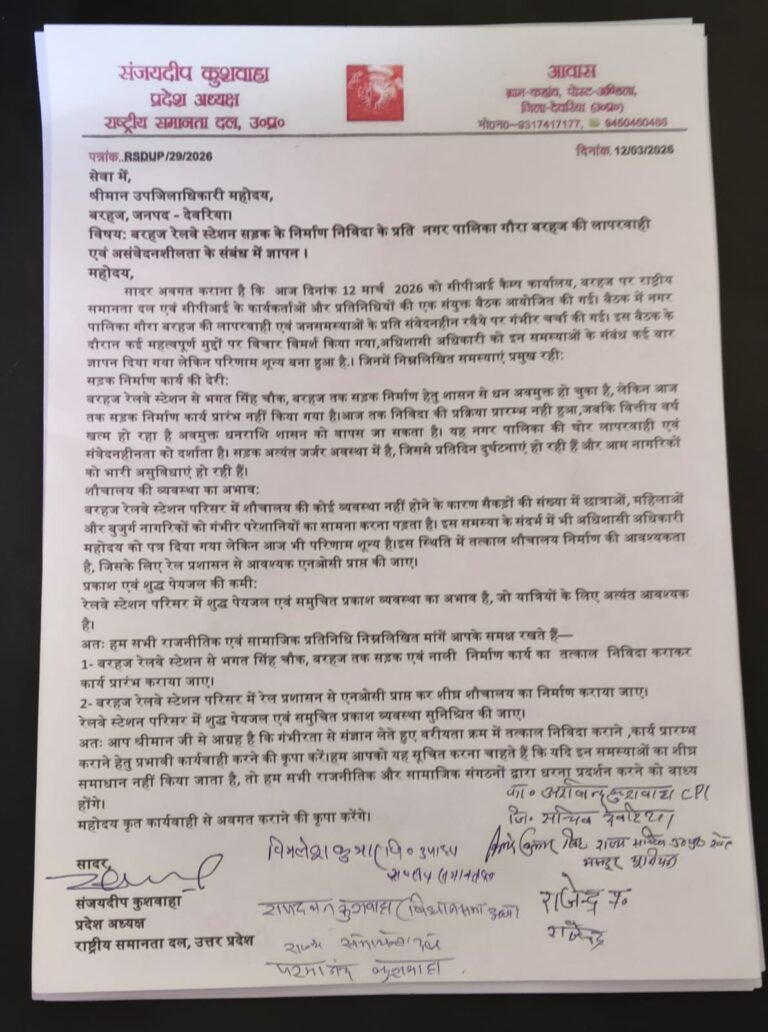 संजयदीप कुशवाहा
प्रदेश अध्यक्ष
राष्ट्रीय समानता दल, उ०प्र०
आवास
ग्राम-कड़ांव, पोस्ट-अण्डिला,
जिला-देवरिया (उ०प्र०)
मो०न०-9317417177, 9450460486
पत्रांक..RSDUP/29/2026
दिनांक. 12/03/2026
सेवा में,
श्रीमान उपजिलाधिकारी महोदय,
बरहज, जनपद - देवरिया।
विषय: बरहज रेलवे स्टेशन सड़क के निर्माण निविदा के प्रति नगर पालिका गौरा बरहज की लापरवाही
एवं असंवेदनशीलता के संबंध में ज्ञापन ।
महोदय,
सादर अवगत कराना है कि आज दिनांक 12 मार्च 2026 को सीपीआई कैम्प कार्यालय, बरहज पर राष्ट्रीय
समानता दल एवं सीपीआई के कार्यकर्ताओं और प्रतिनिधियों की एक संयुक्त बैठक आयोजित की गई। बैठक में नगर
पालिका गौरा बरहज की लापरवाही एवं जनसमस्याओं के प्रति संवेदनहीन रवैये पर गंभीर चर्चा की गई। इस बैठक के
दौरान कई महत्वपूर्ण मुद्दों पर विचार विमर्श किया गया,अधिशासी अधिकारी को इन समस्याओं के संबंध कई बार
ज्ञापन दिया गया लेकिन परिणाम शून्य बना हुआ है.। जिनमें निम्नलिखित समस्याएं प्रमुख रही:
सड़क निर्माण कार्य की देरी:
बरहज रेलवे स्टेशन से भगत सिंह चौक, बरहज तक सड़क निर्माण हेतु शासन से धन अवमुक्त हो चुका है, लेकिन आज
तक सड़क निर्माण कार्य प्रारंभ नहीं किया गया है।आज तक निविदा की प्रक्रिया प्रारम्भ नही हुआ,जबकि वित्तीय वर्ष
खत्म हो रहा है अवमुक्त धनराशि शासन को वापस जा सकता है। यह नगर पालिका की घोर लापरवाही एवं
संवेदनहीनता को दर्शाता है। सड़क अत्यंत जर्जर अवस्था में है, जिससे प्रतिदिन दुर्घटनाएं हो रही हैं और आम नागरिकों
को भारी असुविधाएं हो रही हैं।
शौचालय की व्यवस्था का अभाव:
बरहज रेलवे स्टेशन परिसर में शौचालय की कोई व्यवस्था नहीं होने के कारण सैकड़ों की संख्या में छात्राओं, महिलाओं
और बुजुर्ग नागरिकों को गंभीर परेशानियों का सामना करना पड़ता है। इस समस्या के संदर्भ में भी अधिशासी अधिकारी
महोदय को पत्र दिया गया लेकिन आज भी परिणाम शून्य है।इस स्थिति में तत्काल शौचालय निर्माण की आवश्यकता
है, जिसके लिए रेल प्रशासन से आवश्यक एनओसी प्राप्त की जाए।
प्रकाश एवं शुद्ध पेयजल की कमी:
रेलवे स्टेशन परिसर में शुद्ध पेयजल एवं समुचित प्रकाश व्यवस्था का अभाव है, जो यात्रियों के लिए अत्यंत आवश्यक
है।
अतः हम सभी राजनीतिक एवं सामाजिक प्रतिनिधि निम्नलिखित मांगें आपके समक्ष रखते हैं—
1- बरहज रेलवे स्टेशन से भगत सिंह चौक, बरहज तक सड़क एवं नाली निर्माण कार्य का तत्काल निविदा कराकर
कार्य प्रारंभ कराया जाए।
2- बरहज रेलवे स्टेशन परिसर में रेल प्रशासन से एनओसी प्राप्त कर शीघ्र शौचालय का निर्माण कराया जाए।
रेलवे स्टेशन परिसर में शुद्ध पेयजल एवं समुचित प्रकाश व्यवस्था सुनिश्चित की जाए।
अतः आप श्रीमान जी से आग्रह है कि गंभीरता से संज्ञान लेते हुए वरीयता क्रम में तत्काल निविदा कराने ,कार्य प्रारम्भ
कराने हेतु प्रभावी कार्यवाही करने की कृपा करें।हम आपको यह सूचित करना चाहते हैं कि यदि इन समस्याओं का शीघ्र
समाधान नहीं किया जाता है, तो हम सभी राजनीतिक और सामाजिक संगठनों द्वारा धरना प्रदर्शन करने को बाध्य
होंगे।
महोदय कृत कार्यवाही से अवगत कराने की कृपा करेंगे।
का० अरविन्द कुशवाहा CPI
जि० सचिव देवरिया
विमलेश कुमार
राज्य सचिव उ०प्र० खेत
मजदूर यूनियन
सादर,
संजयदीप कुशवाहा
प्रदेश अध्यक्ष
राष्ट्रीय समानता दल, उत्तर प्रदेश
कुशवाहा
राजेन्द्र प्र०
राजेन्द्र
परमानंद कुशवाहा